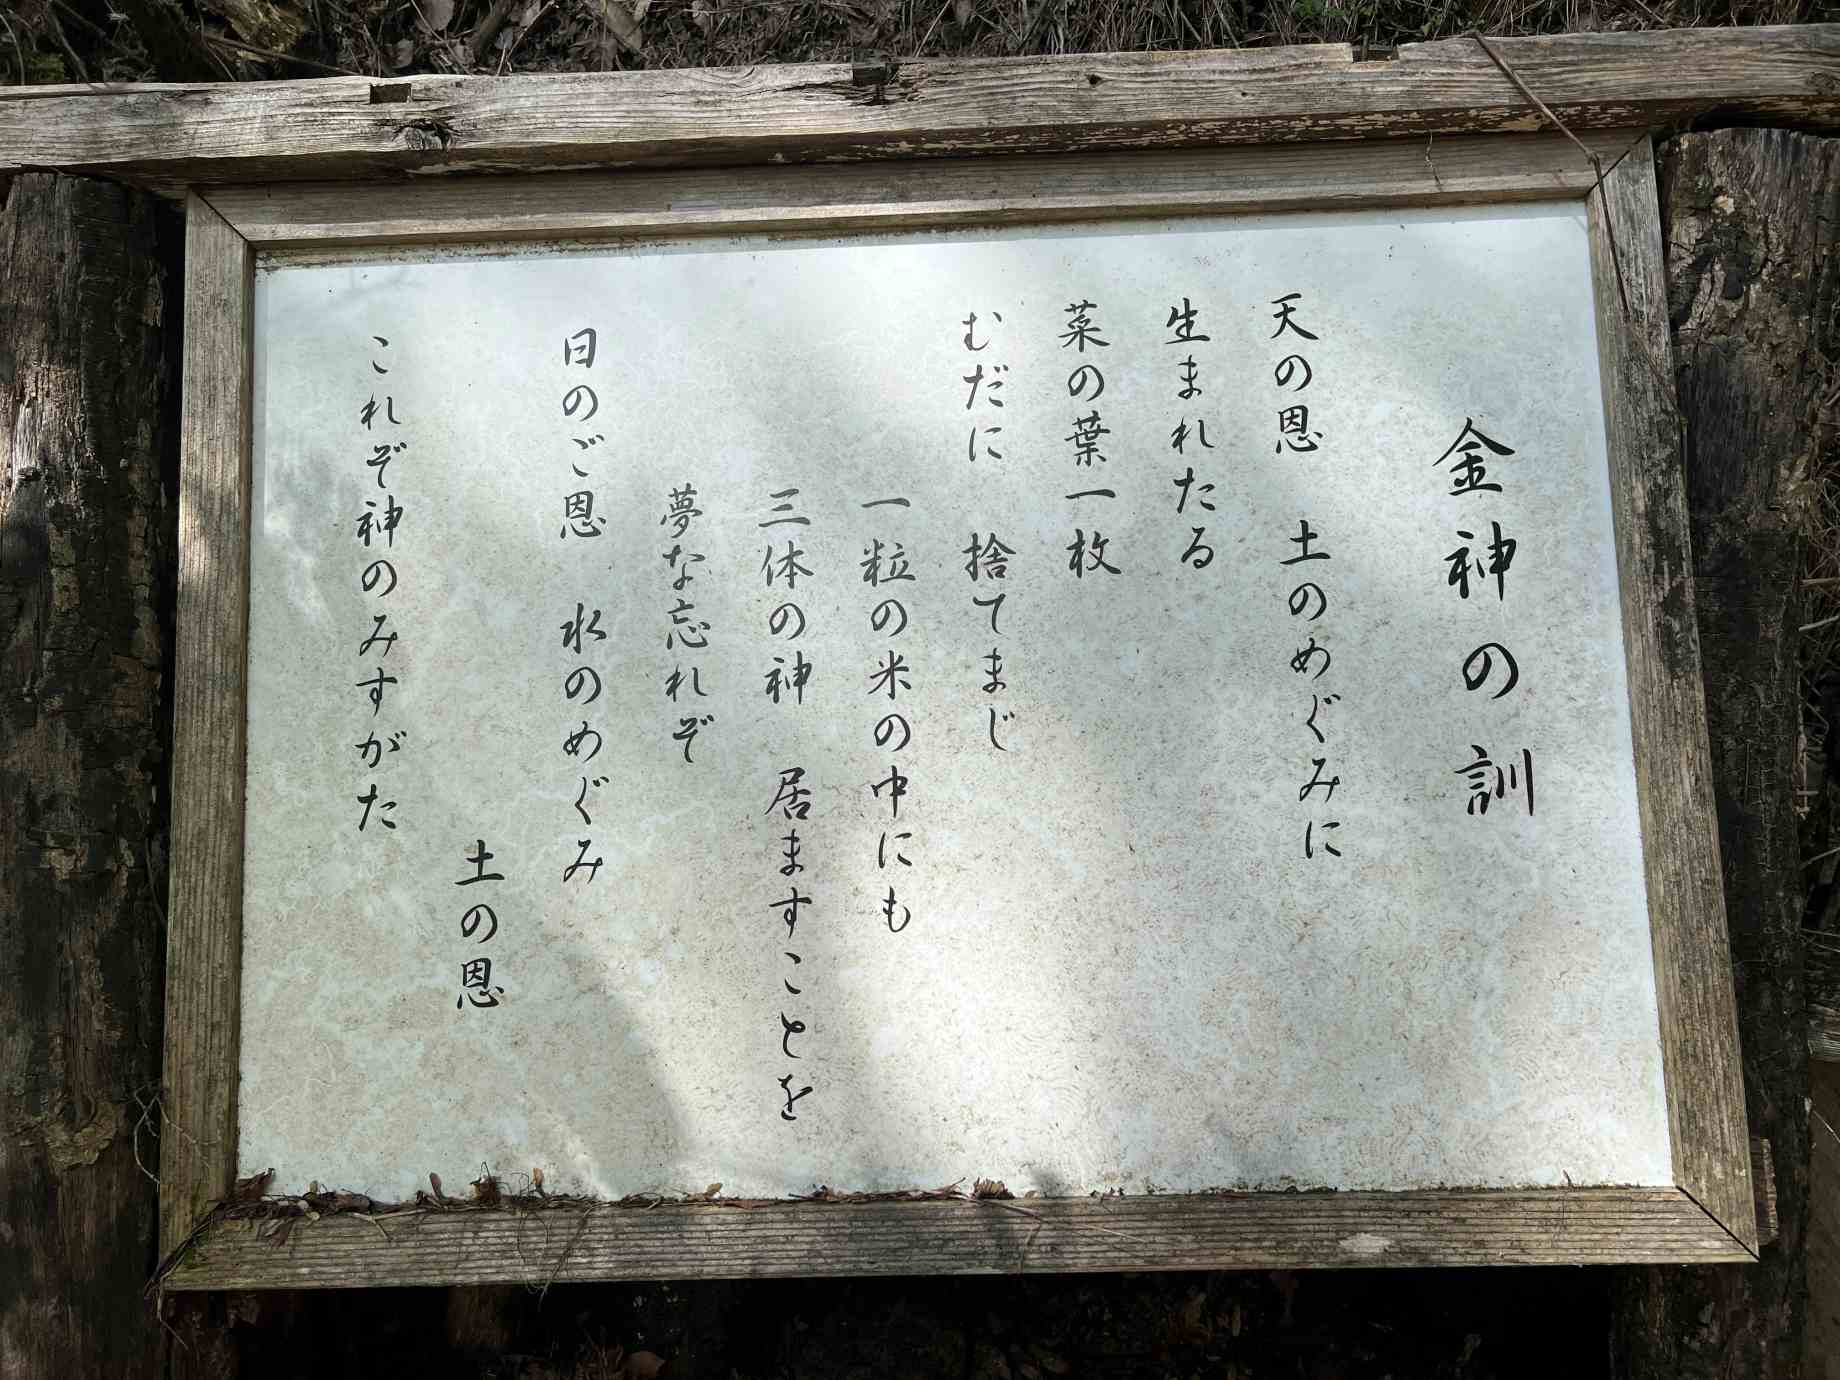 金神の訓
天の恩　土のめぐみに
生まれたる
菜の葉一枚
むだに　捨てまじ
一粒の米の中にも
三体の神　居ますことを
夢な忘れぞ
日のご恩　水のめぐみ
土の恩
これぞ神のみすがた